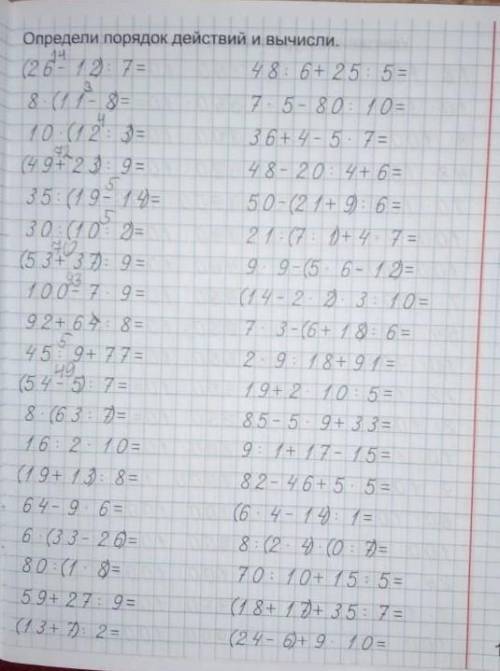 Определи порядок действий и вычисли.
14
(26-12):7=
3
8·(11-8)=
4
10:(12:3)=
72
(49+23):9=
5
35:(19-14)=
5
30:(10:2)=
70
(53+37):9=
93
100-7·9=
92+64:8=
5
45:9+77=
49
(54-5):7=
8·(63:7)=
16:2·10=
(19+13):8=
64-9·6=
6·(33-26)=
80:(1·8)=
59+27:9=
(13+7):2=
48:6+25:5=
7·5-80:10=
36+4-5·7=
48-20:4+6=
50-(21+9):6=
21:(7:1)+4·7=
9·9-(5·6-12)=
(14-2·2)·3:10=
7·3-(6+18):6=
2·9:18+91=
19+2·10:5=
85-5·9+33=
9:1+17-15=
82-46+5·5=
(6·4-14):1=
8:(2·4)·(0:7)=
70:10+15:5=
(18+17)+35:7=
(24-6)+9·10=